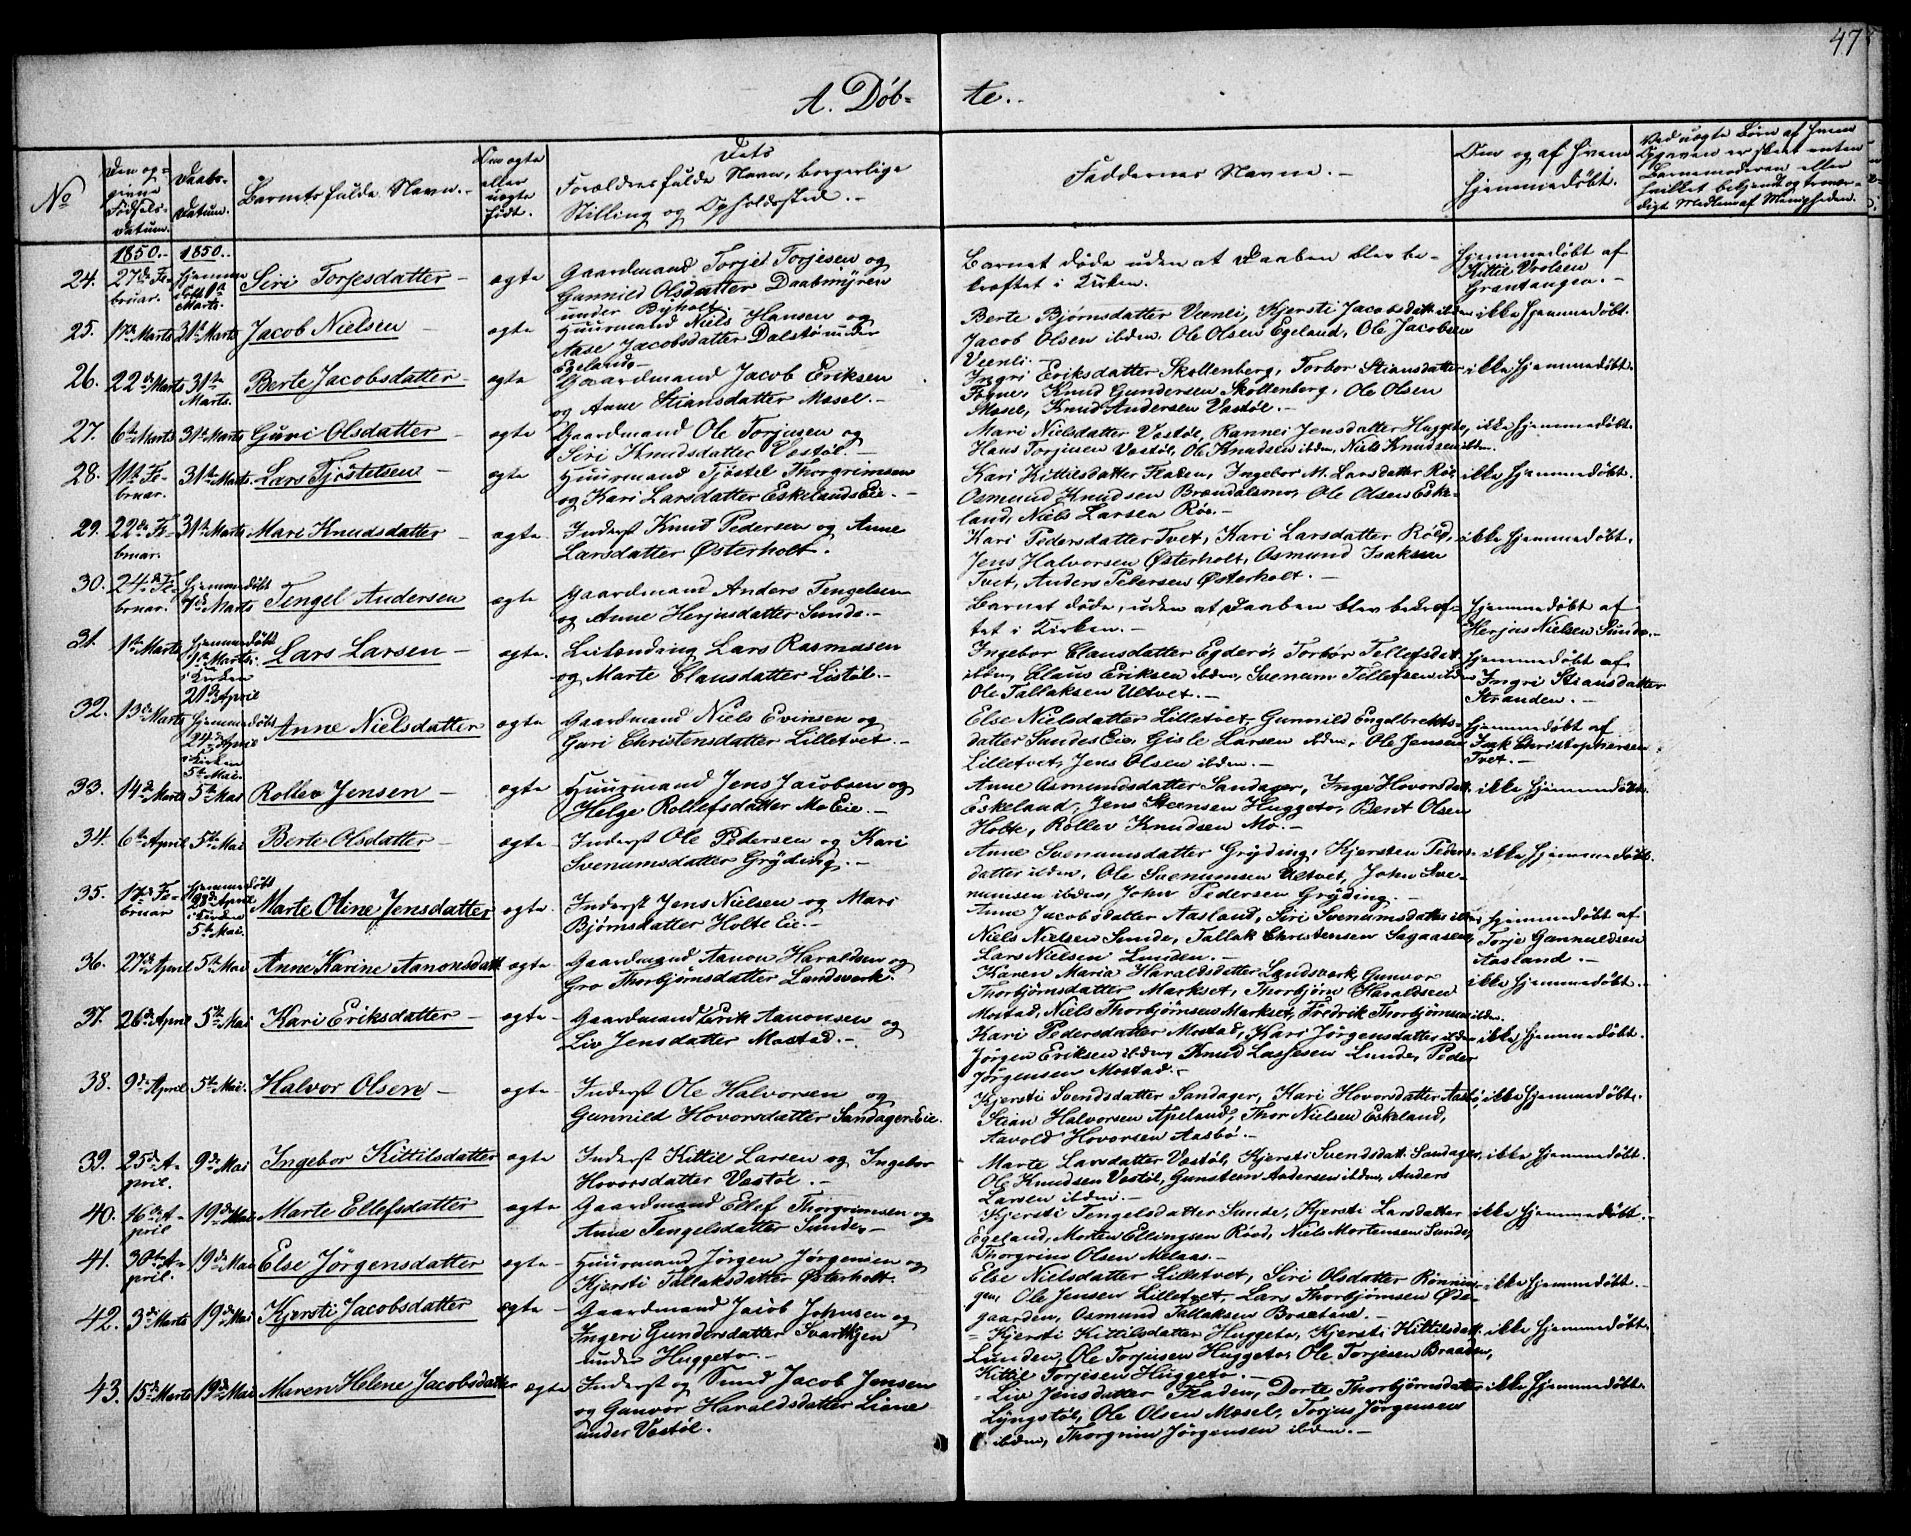 47
A. Døb- te.
No
Den op-
givne
Fødsels-
datum.
Daabs-
Datum.
Barnets fulde Navn.
Om ægte
eller
uægte
født.
Dets
Forældres fulde Navn, borgerlige
Stilling og Opholdssted.
Faddernes Navne.
Om og af hvem
hjemmedøbt.
Ved uægte Børn af hvem
Opgaven er skeet enten
Barnemoderen eller
hvilket bekjendt og trovær-
digt Medlem af Menigheden.
1850. 1850.
24. 27de Fe-
bruar.
Hjemme
døbt 1ste
Marts.
Siri Torjesdatter
ægte
Gaardmand Torjei Torjesen og
Gunnild Olsdatter Daabmyren
under Byholt.
Barnet døde uden at Daaben blev be-
kræftet i Kirken.
Hjemmedøbt af
Kittil
Grantangen.
25. 17de Marts 31te Marts Jacob Nielsen
ægte
Huurmand Niels Hansen og
Aase Jacobsdatter Dalstø under
Egeland.
Berte Bjørnsdatter Veenli, Kjersti Jacobsdatt. ibdm
Jacob Olsen ibdm, Ole Olsen Egeland, Ole Jacobsen
Veenli.
ikke hjemmedøbt.
26. 22de Marts 31te
Marts.
Berte Jacobsdatter
ægte
Gaardmand Jacob Eriksen
og Anne Stiansdatter Mosel.
Ingri Eriksdatter Skollenberg, Torbor Stiansdatter
Fone, Knud Gundersen Skollenberg, Ole Olsen
Mosel, Knud Andersen Vastøl.
ikke hjemmedøbt.
27. 6te Marts 31te Marts Guri Olsdatter
ægte
Gaardmand Ole Torjusen og
Siri Knudsdatter Vastøl.
Mari Nielsdatter Vastøl, Rannei Jensdatter Huggeto,
Hans Torjusen Vastøl, Ole Knudsen ibdm, Niels Knudsen ibdm.
ikke hjemmedøbt.
28. 11te Fe-
bruar.
31te Marts Lars Tjøstelsen
ægte
Huurmand Tjøstel Thorgrimsen
og Kari Larsdatter Eskelands Eie.
Kari Kittilsdatter Fladen, Ingebor M. Larsdatter Røe
Osmund Knudsen Brændalsmo, Ole Olsen Eske-
land, Niels Larsen Røe.
ikke hjemmedøbt.
29. 22de Fe-
bruar.
31te Marts Mari Knudsdatter
ægte
Inderst Knut Pedersen og Anne
Larsdatter Østerholt.
Kari Pedersdatter Tvet, Kari Larsdatter Røed,
Jens Halvorsen Østerholt, Osmund Isaksen
Tvet, Anders Pedersen Østerholt.
ikke hjemmedøbt.
30. 24de Fe-
bruar.
Hjemmedøbt
7de Marts
Tengel Andersen
ægte
Gaardmand Anders Tengelsen
og Anne Herjusdatter Sunde.
Barnet døde, uden at Daaben blev bekræf-
tet i Kirken.
Hjemmedøbt af
Herjus Nielsen Sunde.
31. 1ste Marts
Hjemmedøbt
9de Marts
i Kirken
20de April
Lars Larsen
ægte.
Leilænding Lars Rasmusen
og Marte Clausdatter Listøl.
Ingebor Clausdatter Egderø, Torbør Tellefsdat.
ibdm, Claus Eriksen ibdm, Svenum Tellefsen ibdm
Ole Tallaksen Ultvet.
Hjemmedøbt af
Ingri Stiansdatter
Stranden.
32. 13de Marts
Hjemmedøbt
24de April
i Kirken
5te Mai.
Anne Nielsdatter
ægte
Gaardmand Niels Evinsen og
Guri Christensdatter Lilletvet.
Else Nielsdatter Lilletvet, Gunnild Engelbrechts-
datter Sundes Eie, Gisle Larsen ibdm, Ole Jensen
Lilletvet, Jens Olsen ibdm.
Hjemmedøbt af
Isak Christophersen
Tvet.
33. 14de Marts 5te Mai Rollev Jensen
ægte
Huurmand Jens Jacobsen og
Helge Rollefsdatter Mo Eie.
Anne Osmundsdatter Sandager, Inge Hovorsdatt.
Eskeland, Jens Steensen Huggeto, Bent Olsen
Holte, Rollev Knudsen Mo.
ikke hjemmedøbt.
34. 6te April 5te Mai Berte Olsdatter
ægte
Inderst Ole Pedersen og Kari
Svenumsdatter Gryding.
Anne Svenumsdatter Gryding, Kjersten Peders-
datter ibdm, Ole Svenumsen Ultvet, John Sve-
numsen ibdm, John Pedersen Gryding.
ikke hjemmedøbt.
35. 17de Fe-
bruar
Hjemmedøbt
28de April
i Kirken
5te Mai.
Marte Oline Jensdatter
ægte
Inderst Jens Nielsen og Mari
Bjørnsdatter Holte Eie.
Anne Jacobsdatter Aasland, Siri Svenumsdatter ibdm
Niels Nielsen Sunde, Tallak Christensen Sagaasen,
Lars Nielsen Lunden.
Hjemmedøbt af
Torje Gunnuldsen
Aasland.
36. 27de April 5te Mai Anne Karine Aanonsdatt.
ægte
Gaardmand Aanon Haraldsen og
Gro Thorbjørnsdatter Landsverk.
Karen Maria Haraldsdatter Landsverk, Gunvor
Thorbjørnsdatter Markset, Thorbjørn Haraldsen
Mostad, Niels Thorbjørnsen Markset, Fredrik Thorbjørnsen ibdm.
ikke hjemmedøbt.
37. 26de April 5te Mai Kari Eriksdatter
ægte
Gaardmand Erik Aanonsen og
Liv Jensdatter Mostad.
Kari Pedersdatter Mostad, Kari Jørgensdatter ibdm
Jørgen Eriksen ibdm, Knud Lassesen Lunde, Peder
Jørgensen Mostad.
ikke hjemmedøbt.
38. 9de April 5te Mai. Halvor Olsen
ægte
Inderst Ole Halvorsen og
Gunnild Hovorsdatter Sandager Eie.
Kjersti Svendsdatter Sandager, Kari Hovorsdatter Aasbø,
Stian Halvorsen Apeland, Thor Nielsen Eskeland,
Aavold Hovorsen Aasbø.
ikke hjemmedøbt.
39. 25de A-
pril.
9de Mai Ingebor Kittilsdatter
ægte
Inderst Kittil Larsen og Ingebor
Hovorsdatter Vastøl.
Marte Larsdatter Vastøl, Kjersti Svendsdatt. Sandager,
Ole Knudsen Vastøl, Gunstein Andersen ibdm, Anders
Larsen ibdm.
ikke hjemmedøbt.
40. 16de A-
pril
19de Mai Marte Ellefsdatter
ægte
Gaardmand Ellef Thorgrimsen og
Anne Tengelsdatter Sunde.
Kjersti Tengelsdatter Sunde, Kjersti Larsdatter
Egeland, Morten Ellingsen Røed, Niels Mortensen Sunde,
Thorgrim Olsen Melaas.
ikke hjemmedøbt.
41. 30te A-
pril.
19de Mai Else Jørgensdatter
ægte
Huurmand Jørgen Jørgensen og
Kjersti Tallaksdatter Østerholt.
Else Nielsdatter Lilletvet, Siri Olsdatter Rønnin-
gen, Ole Jensen Lilletvet, Lars Thorbjørnsen Øde-
gaarden, Osmund Tallaksen Braatane.
ikke hjemmedøbt.
42. 3de Marts 19de Mai Kjersti Jacobsdatter
ægte
Gaardmand Jacob Johnsen og
Ingeri Gundersdatter Svarttjen
under Huggeto.
Kjersti Kittilsdatter Huggeto, Kjersti Kittilsdatt.
Lunden, Ole Torjusen Huggeto, Ole Torjesen Braaden,
Kittil Torjisen Huggeto.
ikke hjemmedøbt.
43. 15de Marts 19de Mai Maren Helene Jacobsdatter
ægte
Inderst og Smed Jacob Jensen
og Gunvor Haraldsdatter Liane
under Vastøl.
Liv Jensdatter Fladen, Dorte Thorbjørnsdatter
Lyngstøl, Ole Olsen Mosel, Torjus Jørgensen
ibdm, Thorgrim Jørgensen ibdm.
ikke hjemmedøbt.